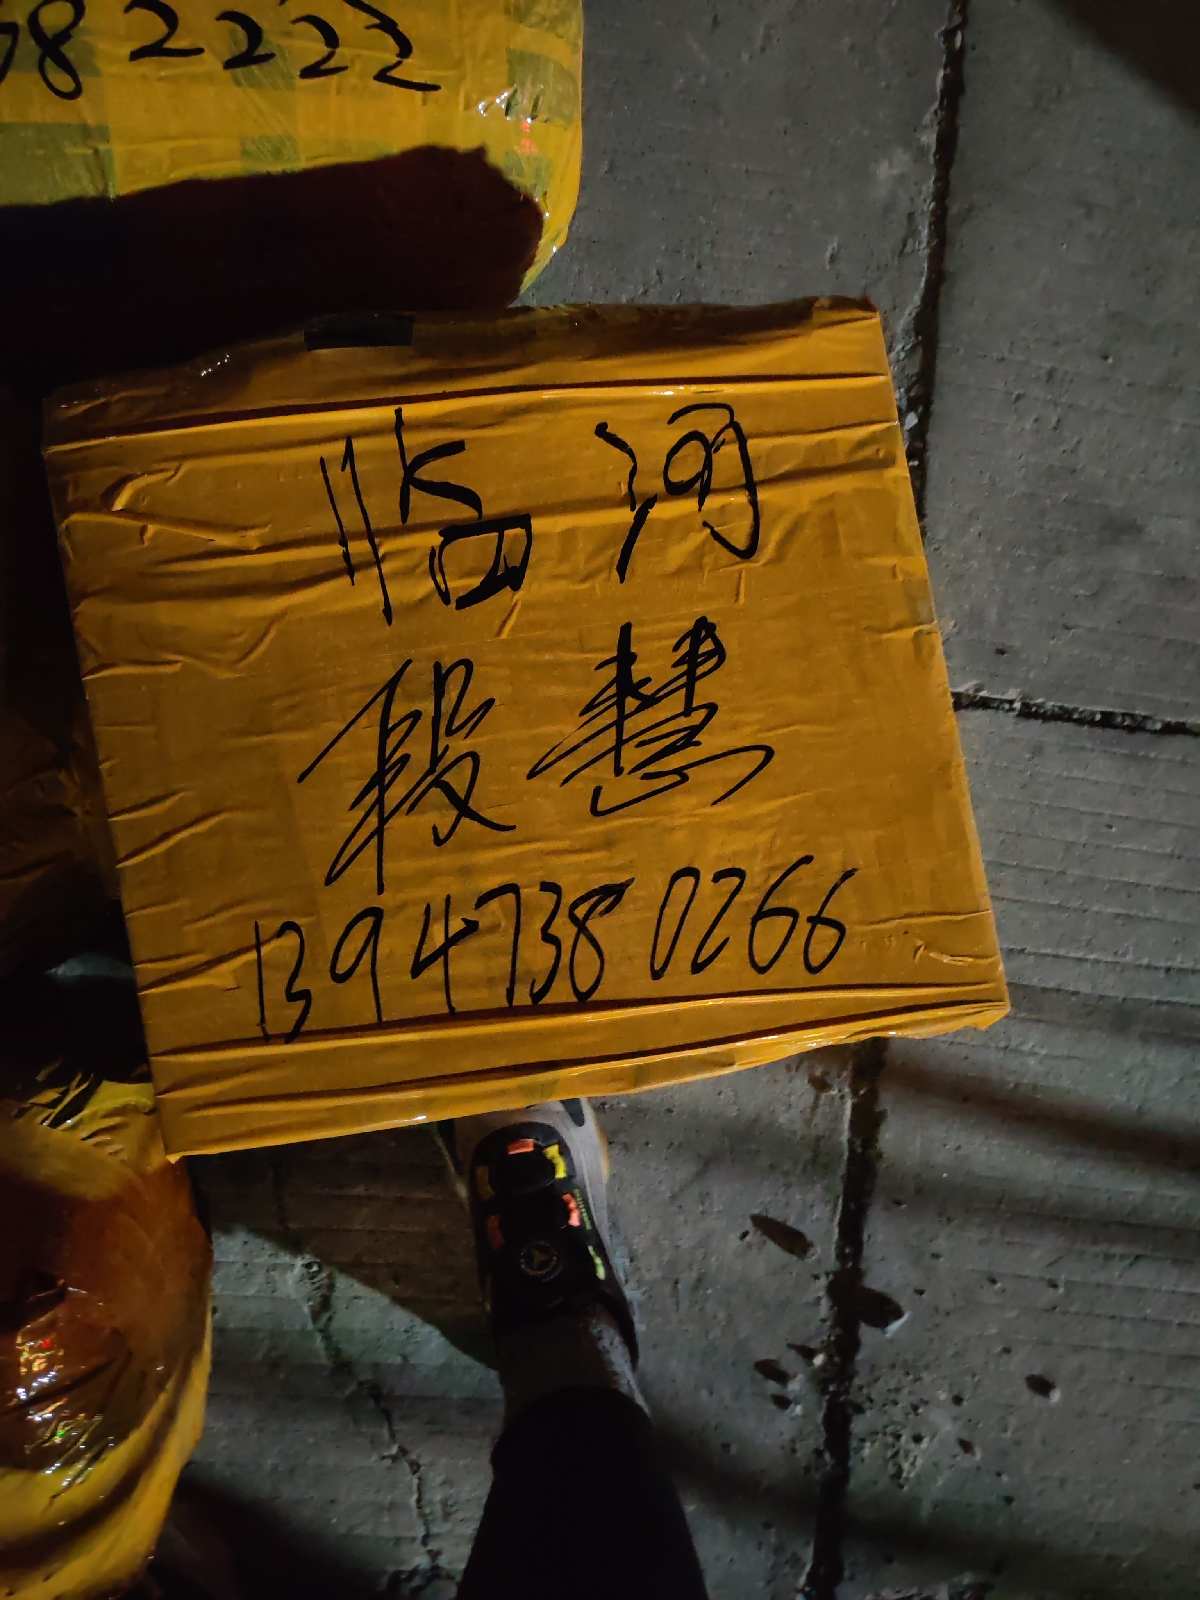 82222
临河
段慧
13947380266